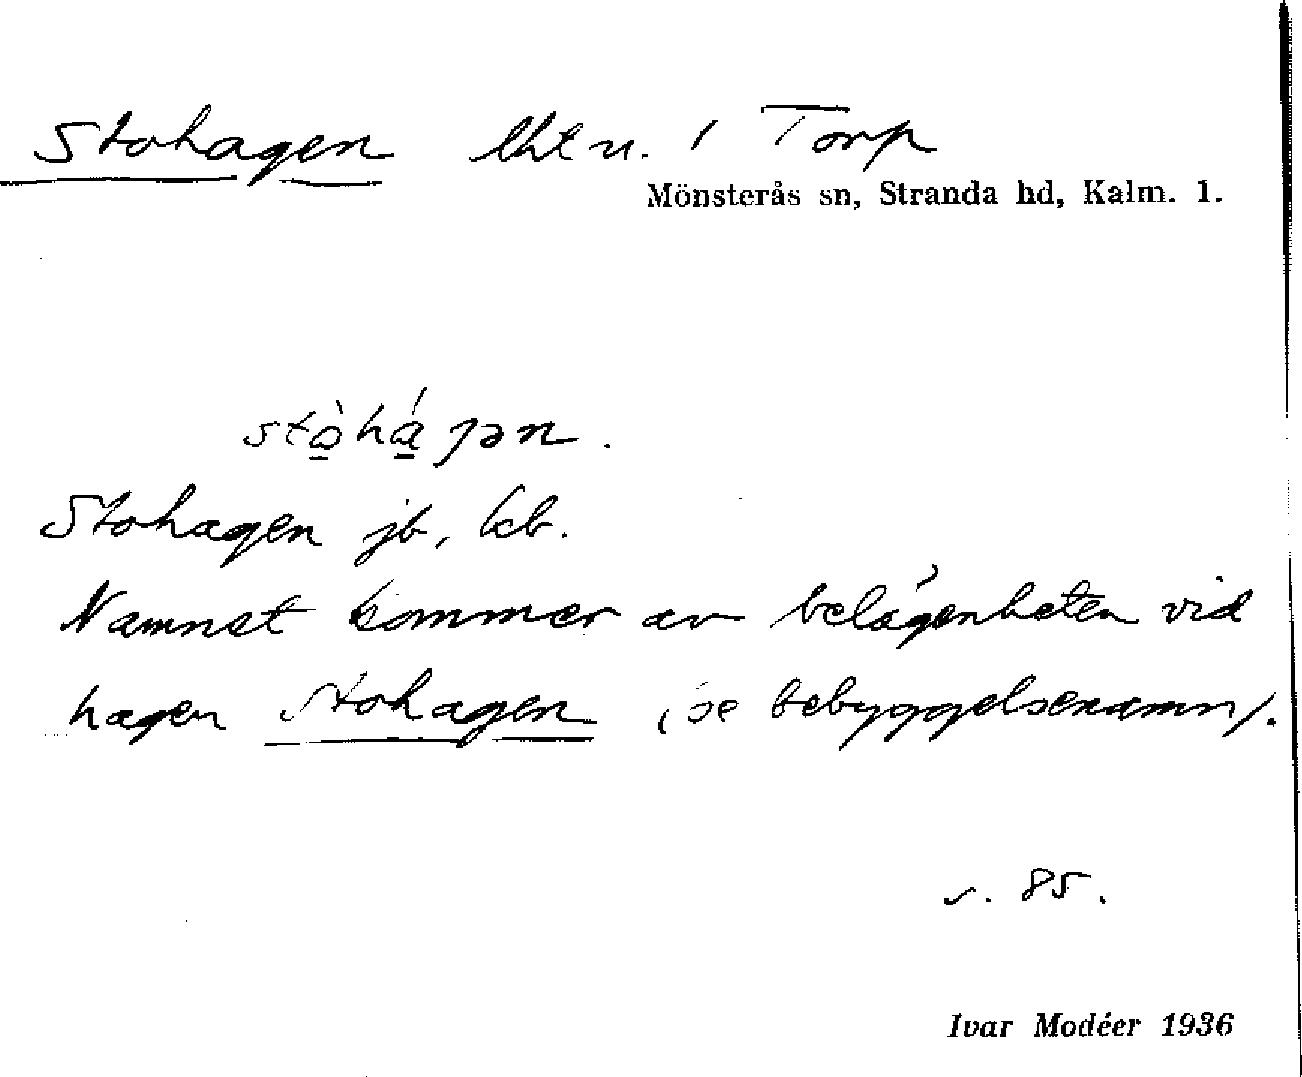 Stohagen lht u. 1 Torp
Mönsterås sn, Stranda hd, Kalm. l.
stò̱há̱ɡən.
Stohagen jb, kb.
Namnet kommer av belägenheten vid
hagen Stohagen (se bebyggelsenamn).
s. 85.
Ivar Modéer 1936